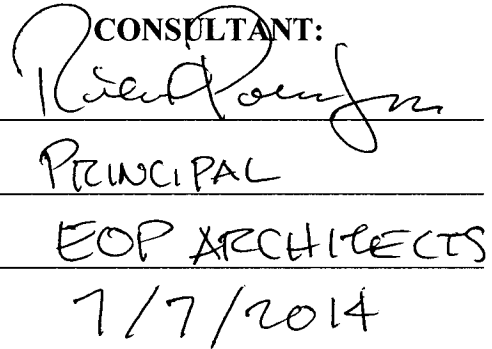 CONSULTANT:
PRINCIPAL
EOP ARCHITECTS
7/7/2014